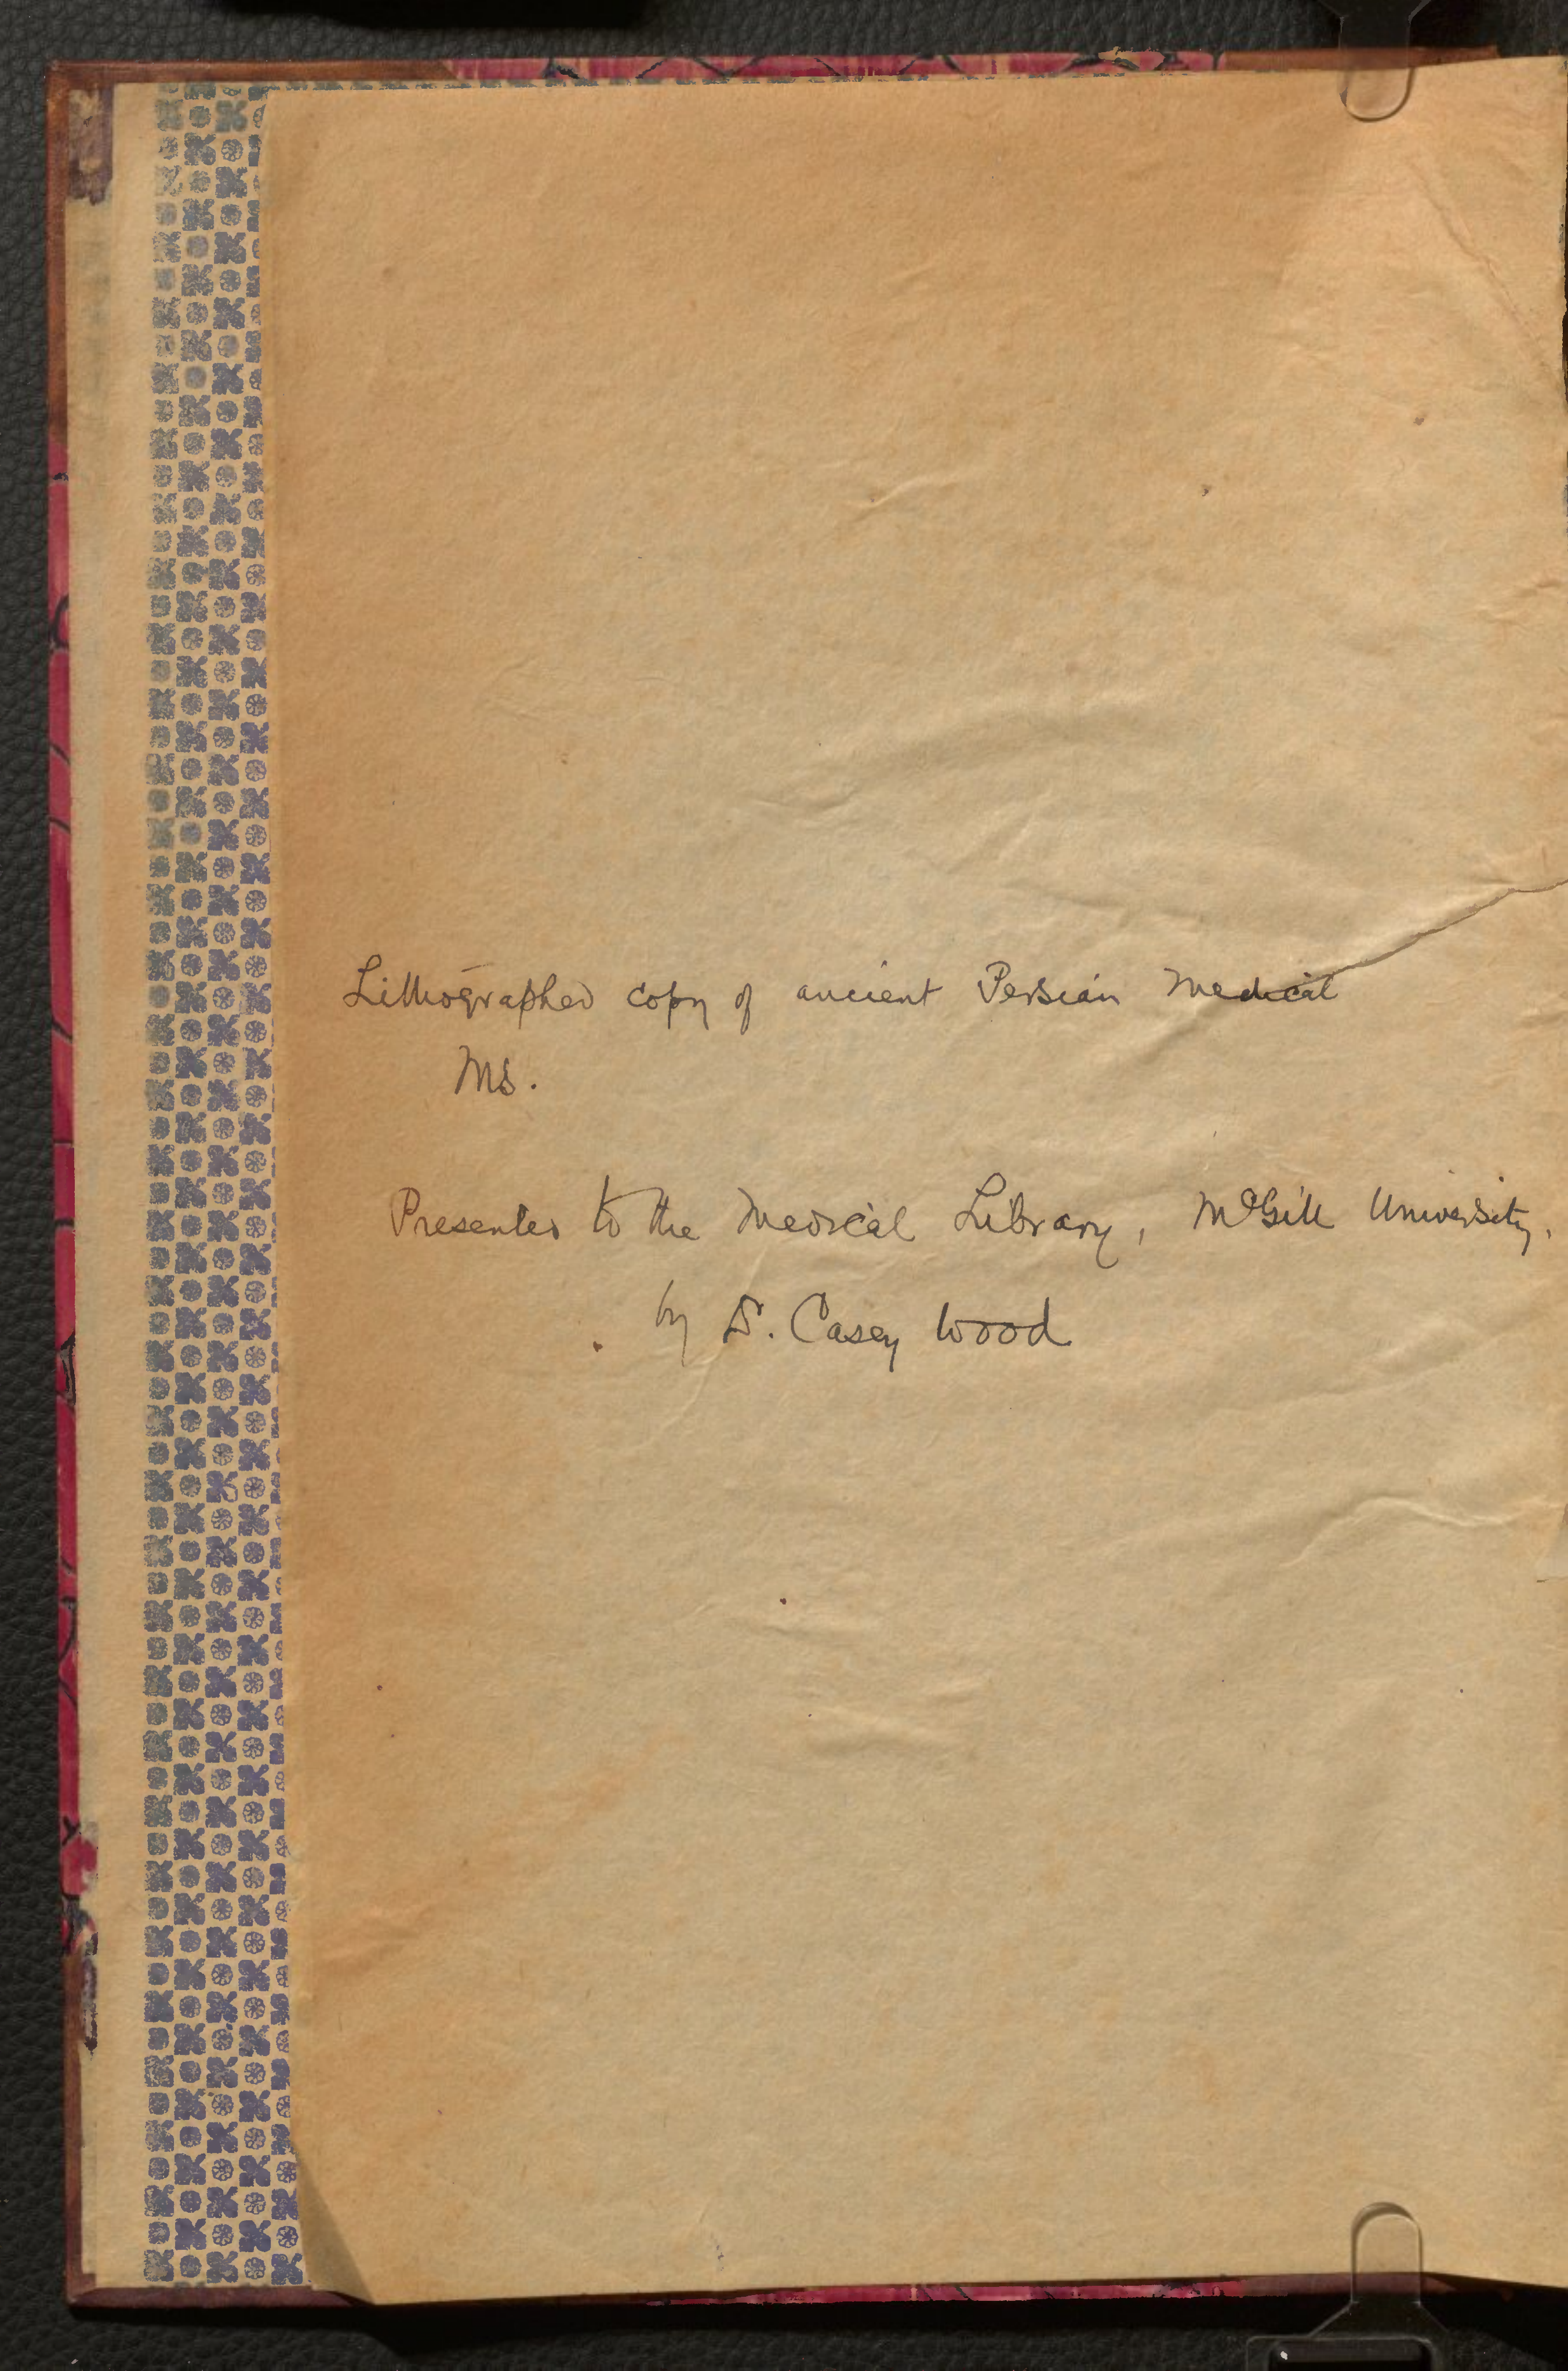 Lithographed copy of ancient Persian Medical
Ms.
Presented to the Medical Library, McGill University.
by D. Casey Wood